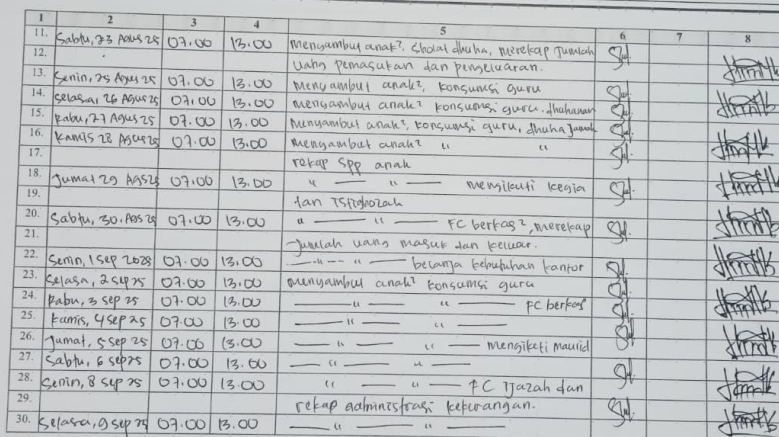 1 2 3 4 5 6 7 8
11. Sabtu, 23 Agus 25 07.00 13.00 Menyambut anak², sholat dhuha, merekap jumlah
12. uang pemasukan dan pengeluaran.
13. Senin, 25 Agus 25 07.00 13.00 Menyambut anak², konsumsi guru
14. Selasa, 26 Agus 25 07.00 13.00 menyambut anak² konsumsi guru.
15. Rabu, 27 Agus 25 07.00 13.00 Menyambut anak², konsumsi guru, dhuha
16. Kamis 28 Agus 25 07.00 13.00 Menyambut anak² " "
17. rekap SPP anak
18. Jumat 29 Ags 25 07.00 13.00 " — " — mengikuti kegia
19. tan istighozah
20. Sabtu, 30, Ags 25 07.00 13.00 " — " — FC berkas², merekap
21. Jumlah uang masuk dan keluar.
22. Senin, 1 Sep 2025 07.00 13.00 — " — " — belanja kebutuhan kantor
23. Selasa, 2 sep 25 07.00 13.00 menyambut anak² konsumsi guru
24. Rabu, 3 sep 25 07.00 13.00 — " — " — FC berkas
25. Kamis, 4 Sep 25 07.00 13.00 — " — " —
26. Jumat, 5 Sep 25 07.00 13.00 — " — " — mengikuti Maulid
27. Sabtu, 6 sep 25 07.00 13.00 — " — " —
28. Senin, 8 Sep 25 07.00 13.00 " — " — FC Ijazah dan
29. rekap administrasi kekurangan.
30. Selasa, 9 sep 25 07.00 13.00 — " — " —